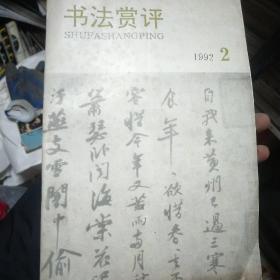 书法赏评
SHUFASHANGPING
1992 2
自我来黄州已过三寒
食年年欲惜春春不
容惜今年又苦雨两月秋
萧瑟卧闻海棠花泥
污燕支雪闇中偷